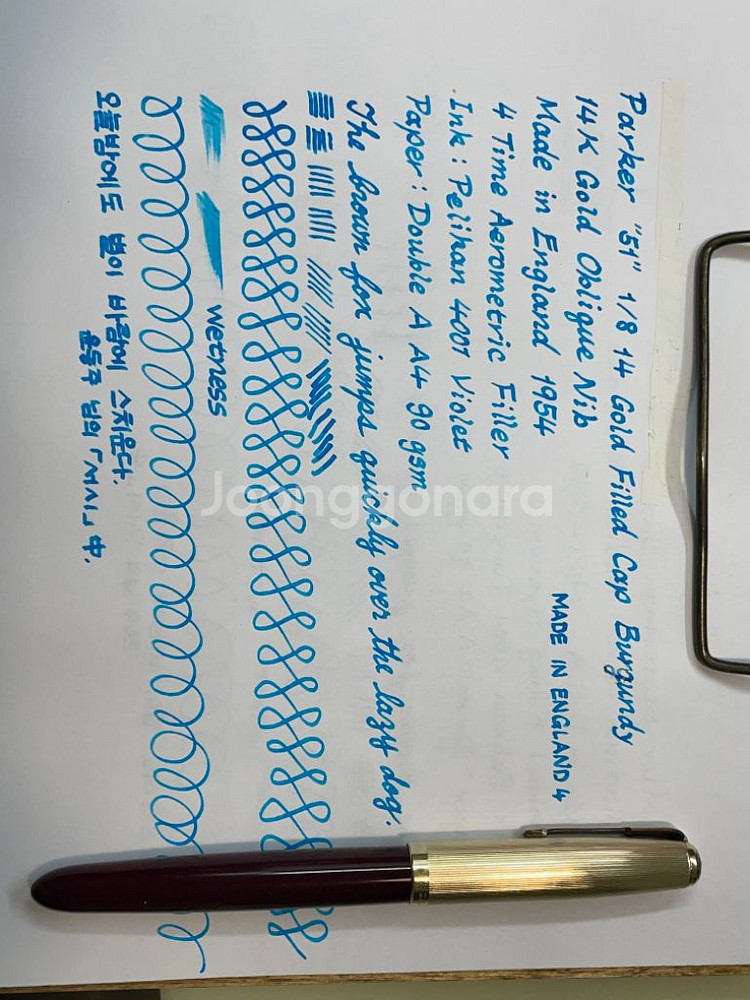 Parker "51" 1/8 14 Gold Filled Cap Burgundy
14K Gold Oblique Nib
Made in England 1954
MADE IN ENGLAND 4
4 Time Aerometric Filler
Ink : Pelihan 4001 Violet
Paper : Double A A4 90 gsm
The brown fox jumps quickly over the lazy dog.
wetness
오늘밤에도 별이 바람에 스치운다.
윤동주 님의 「서시」 中.
Joonggonara